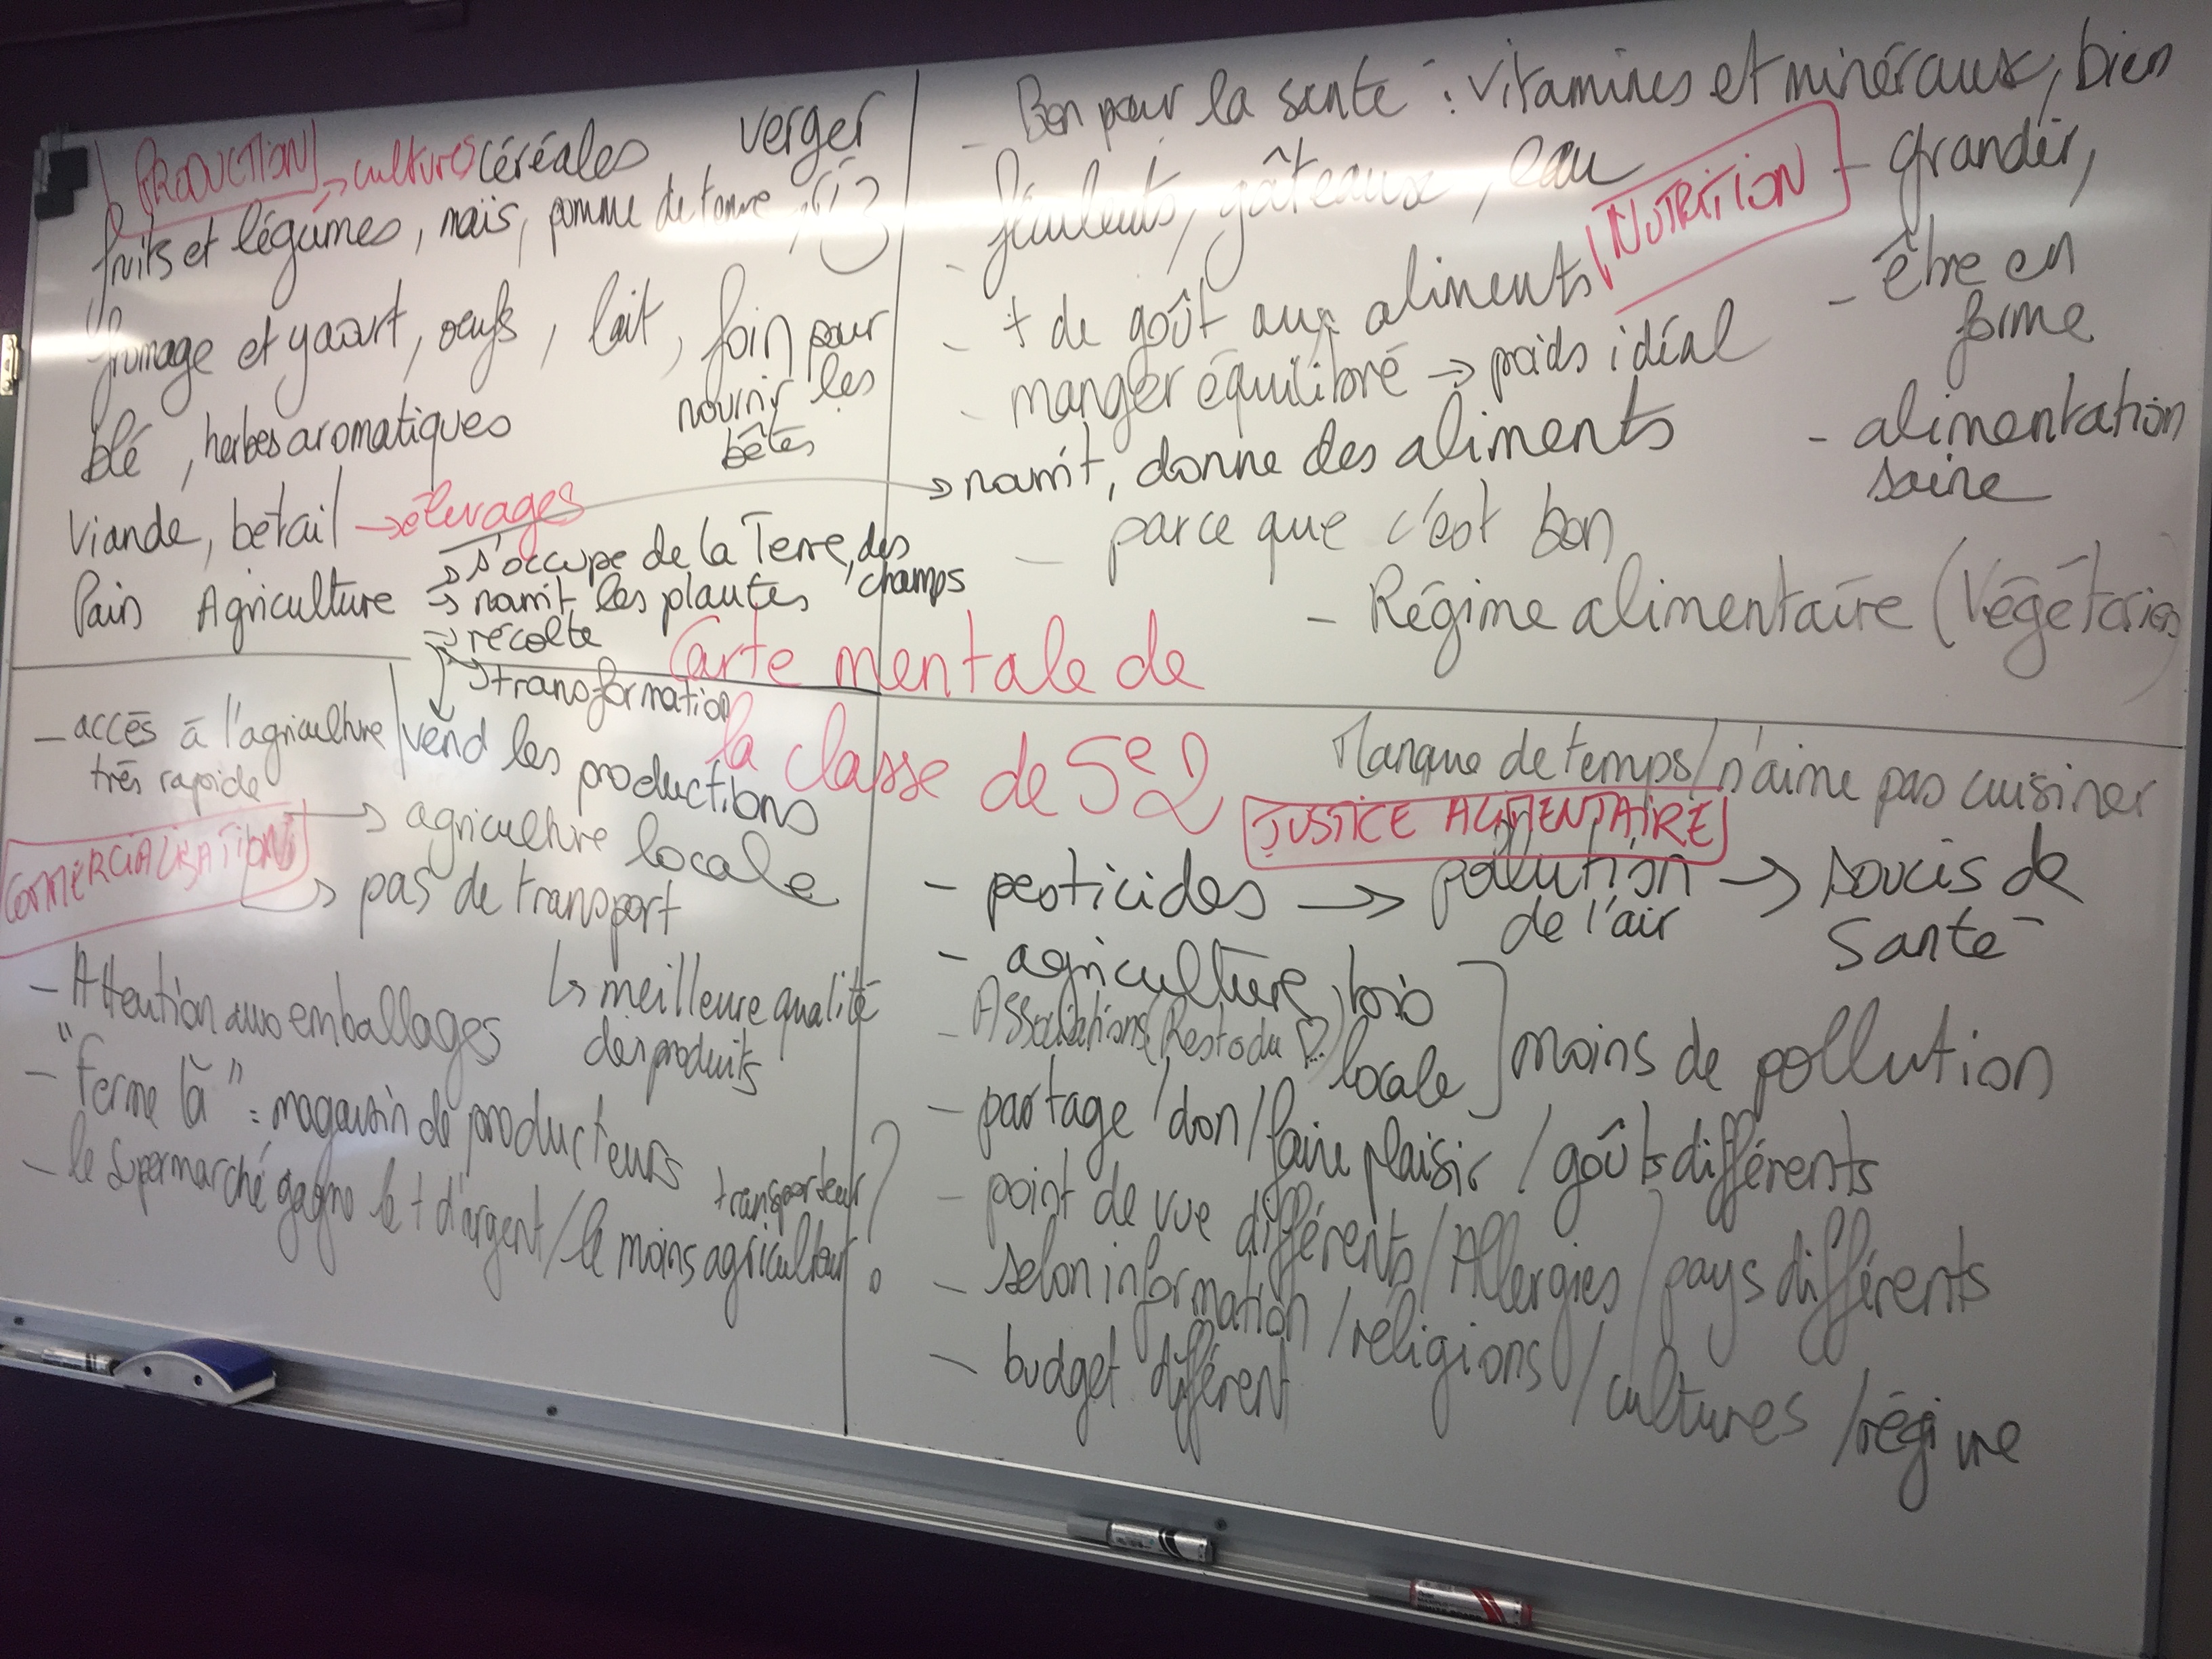 PRODUCTION → cultures céréales verger
fruits et légumes, maïs, pomme de terre,
fromage et yaourt, oeufs, lait, foin pour
nourrir les
bêtes
blé, herbes aromatiques
Viande, bétail → élevages
Pain Agriculture → s'occupe de la Terre, des
champs
→ nourrit les plantes
→ récolte
→ transformation
vend les
productions
- Bon pour la santé : vitamines et minéraux, bien
grandir,
- féculents, gâteaux, eau
NUTRITION
- + de goût aux aliments
- être en
forme
- manger équilibré → poids idéal
→ nourrit, donne des aliments
- alimentation
saine
- parce que c'est bon
- Régime alimentaire (Végétarien)
Carte mentale de
la classe de 5e2
- accès à l'agriculture
très rapide
COMMERCIALISATION
→ agriculture locale
→ pas de transport
↳ meilleure qualité
des produits
- Attention aux emballages
- "Ferme là" = magasin de producteurs
- le supermarché gagne le + d'argent / le moins agriculteur
transporteur
?
Manque de temps / n'aime pas cuisiner
JUSTICE ALIMENTAIRE
- pesticides → pollution
de l'air → soucis de
santé
- agriculture, bio
locale ] moins de pollution
- Associations (Resto du ♡)
- partage / don / faire plaisir / goûts différents
- point de vue différents / Allergies / pays différents
- selon information / réligions / cultures / régime
- budget différent